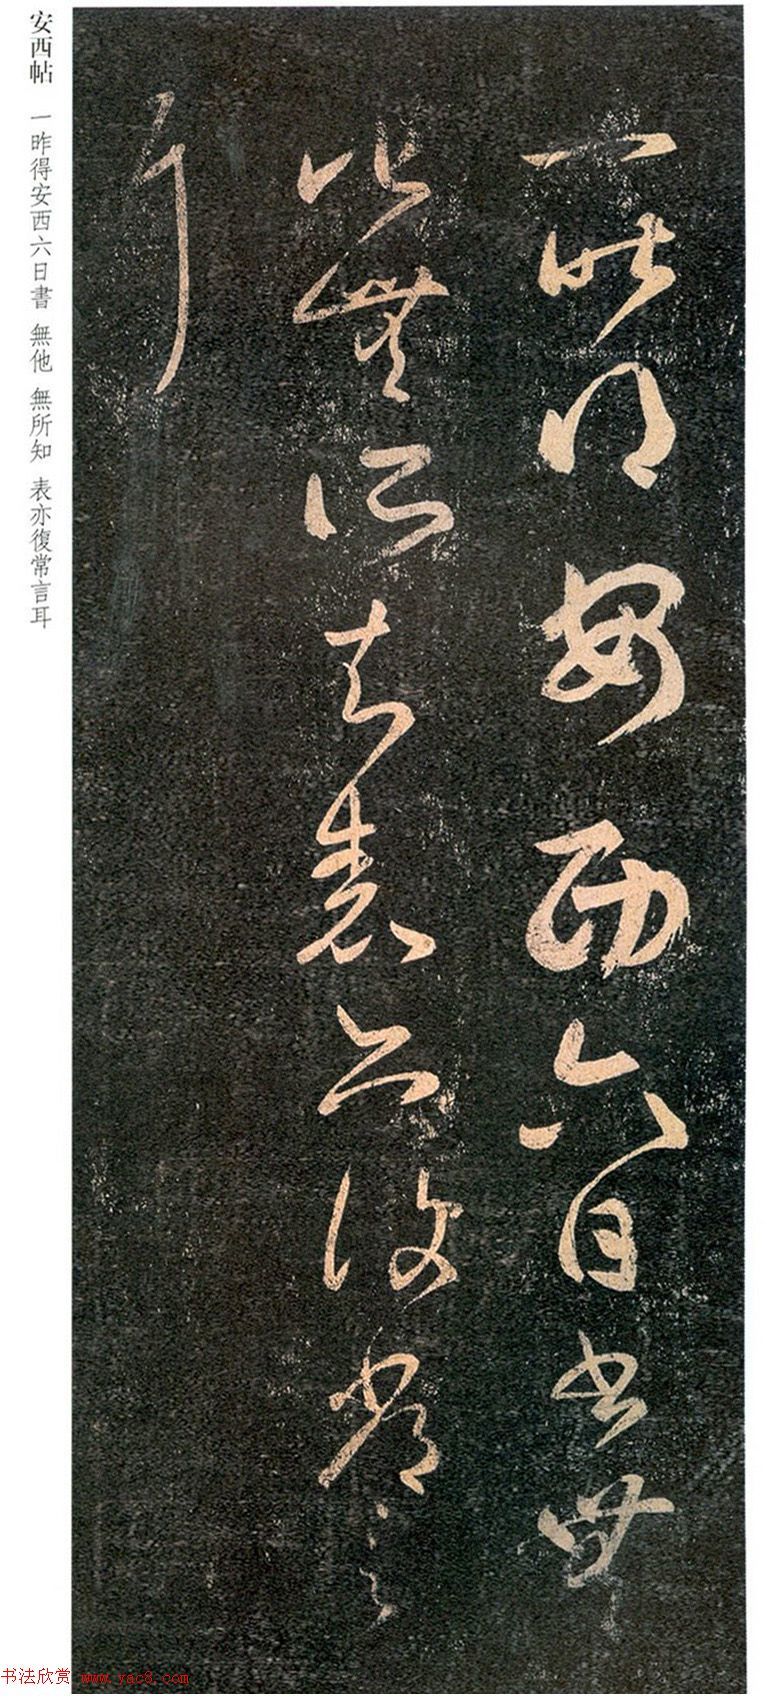 一昨得安西六日書無
他無所知表亦復常言
耳
安西帖 一昨得安西六日書 無他 無所知 表亦復常言耳
书法欣赏 www.yac8.com